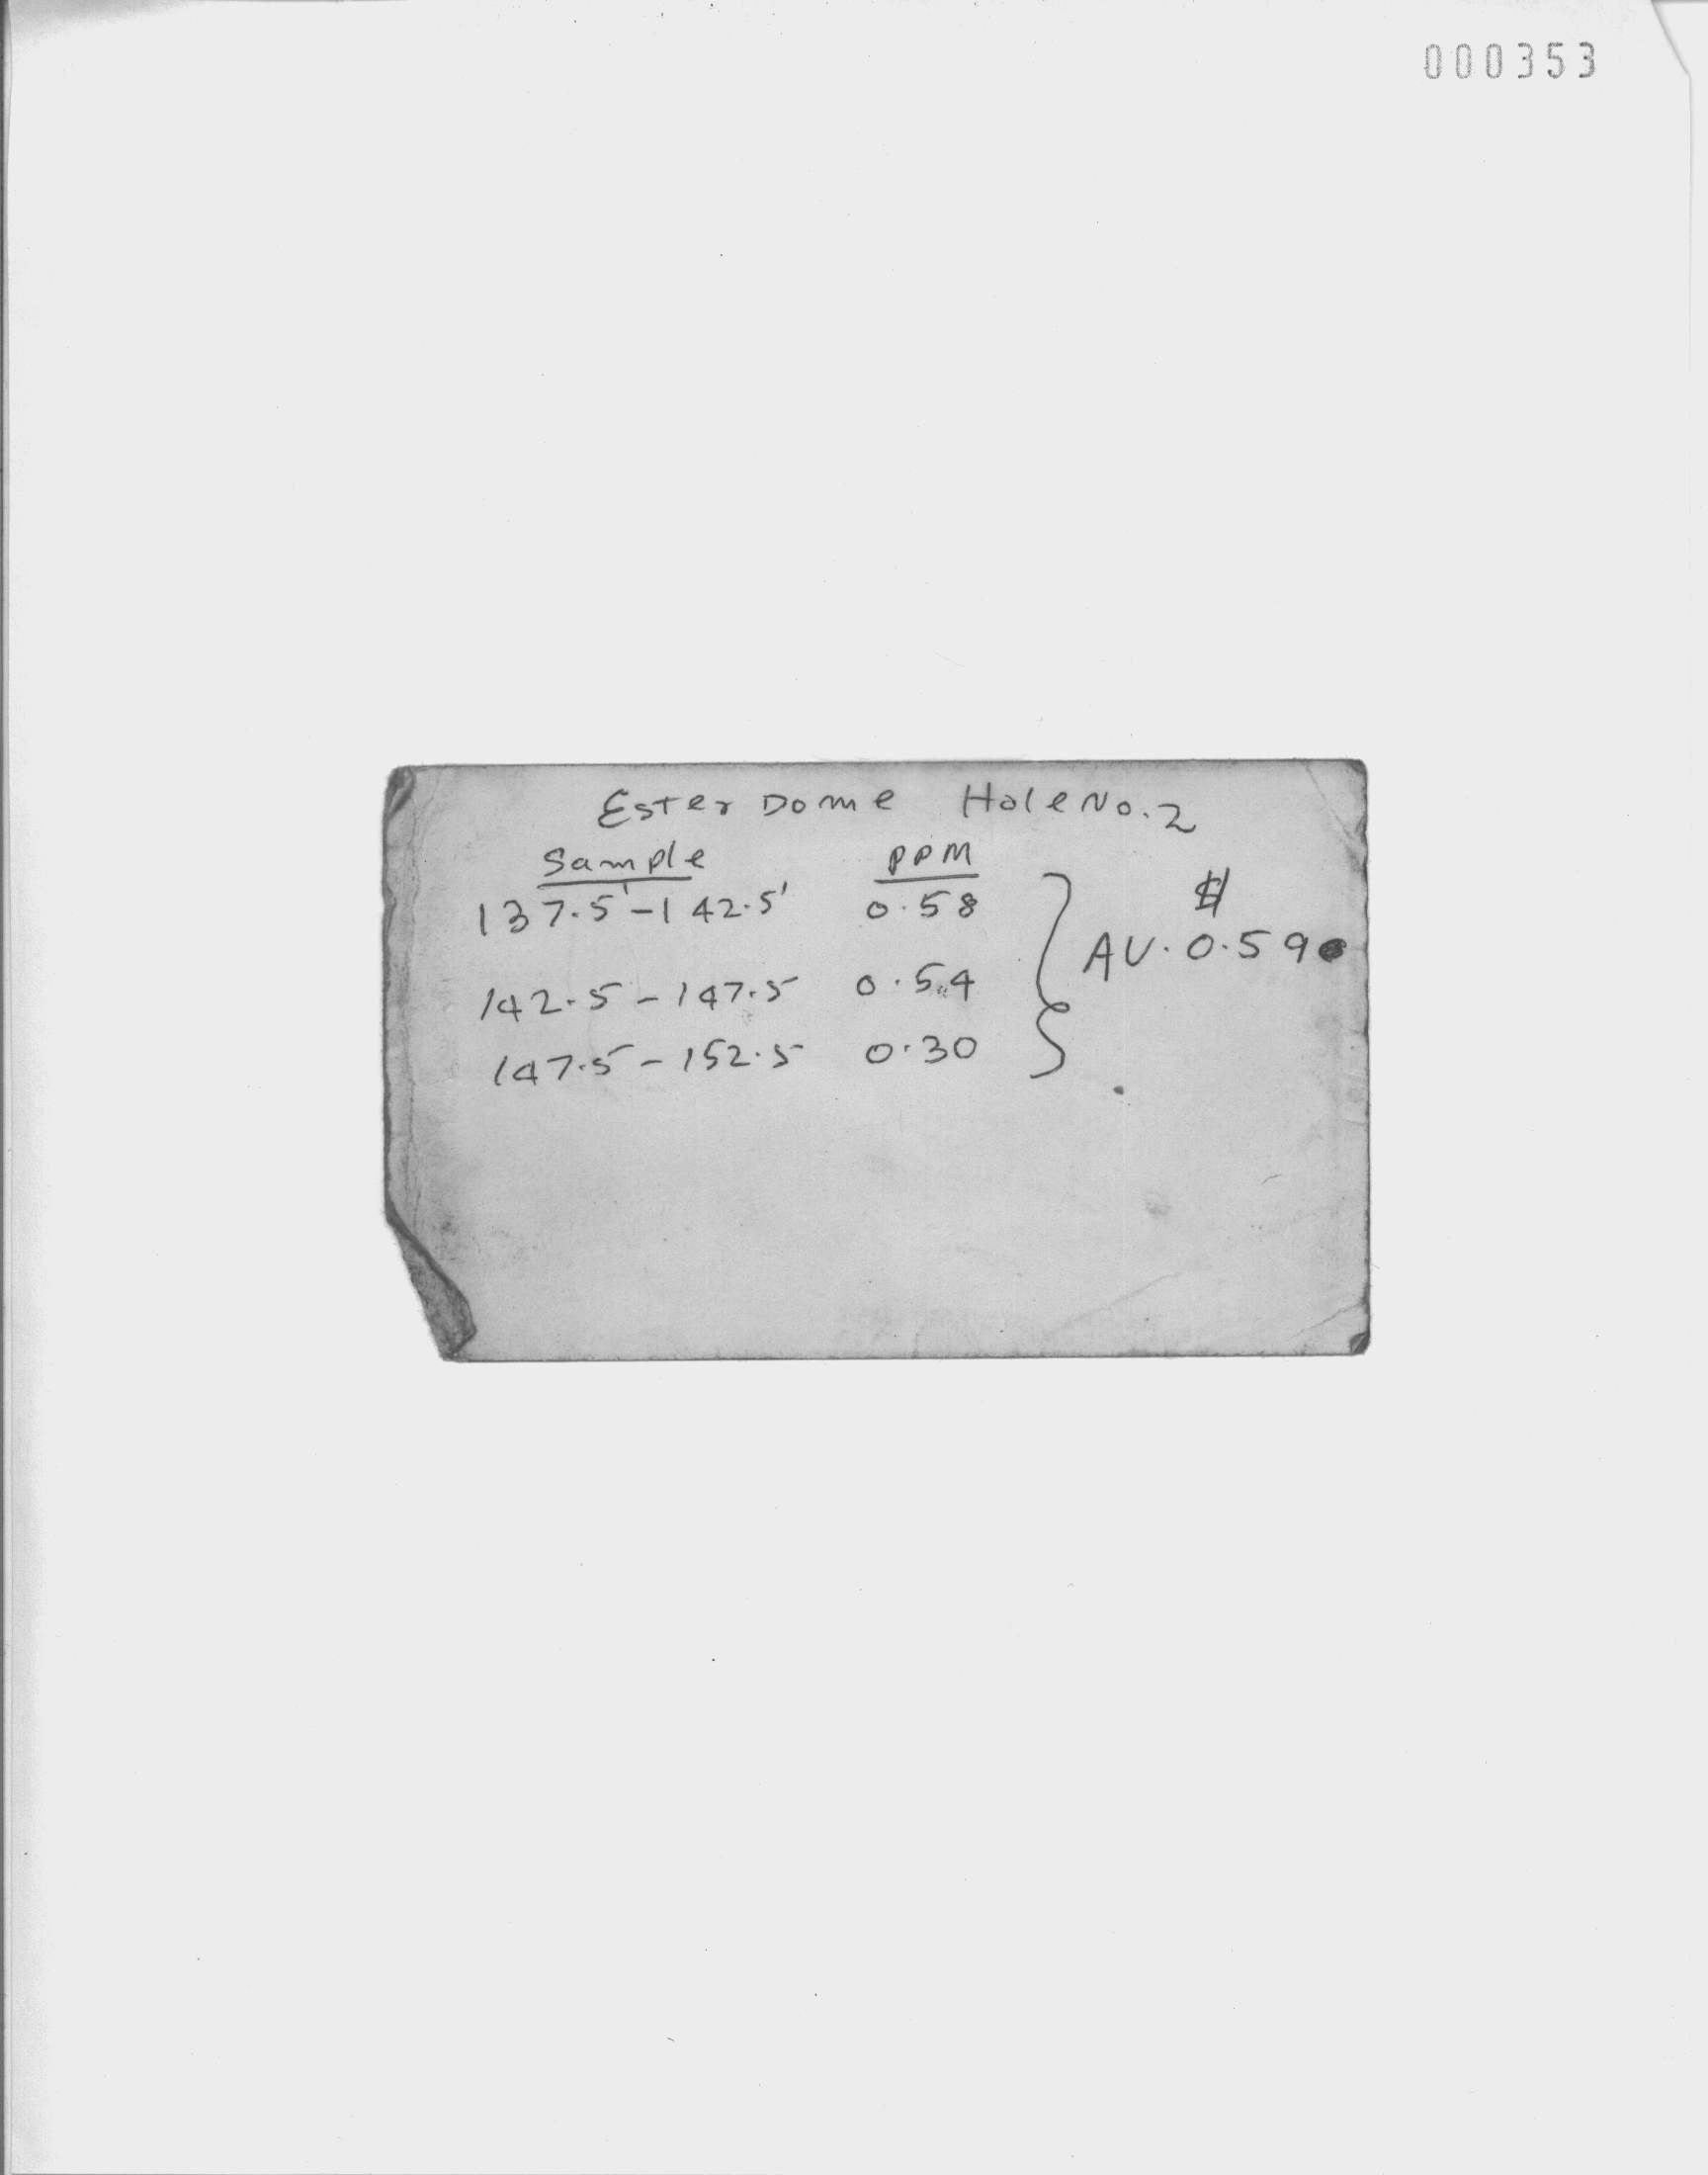 000353
Ester Dome Hole No. 2
Sample PPM
137.5'-142.5' 0.58 $
AV. 0.59
142.5-147.5 0.54
147.5-152.5 0.30